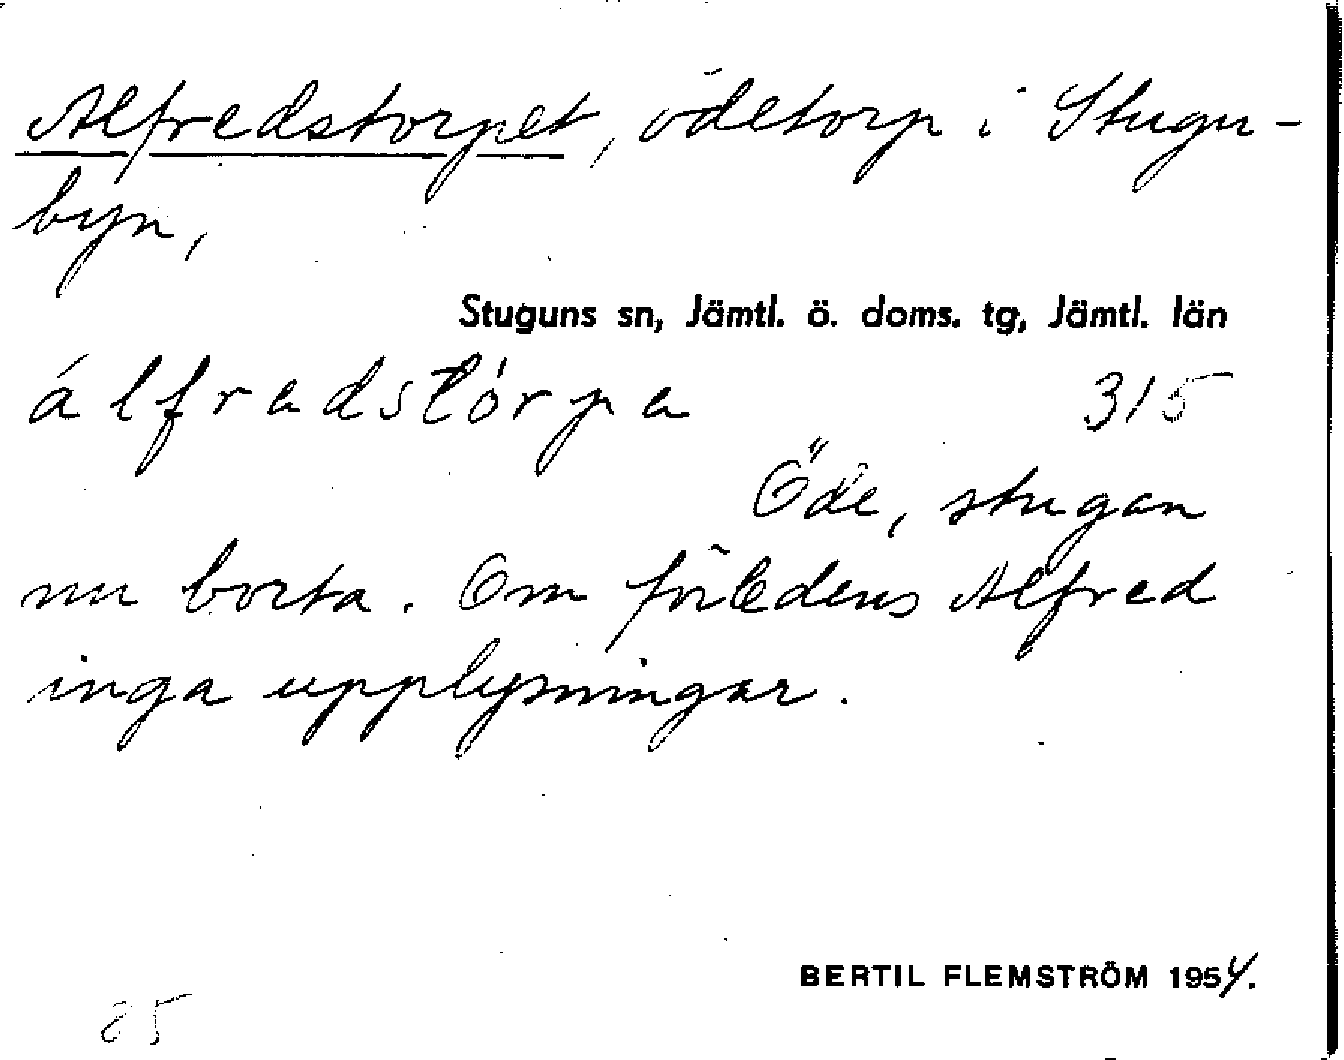 Alfredstorpet, ödetorp i Stugu-
byn,
Stuguns sn, Jämtl. ö. doms. tg, Jämtl. län
álfradstórpa 315
Öde, stugan
nu borta. Om förledens Alfred
inga upplysningar.
BERTIL FLEMSTRÖM 1954.
85